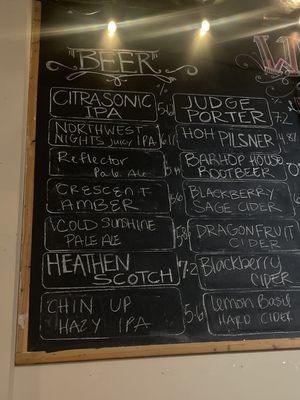 BEER
W
%
CITRASONIC
IPA
5.6
NORTHWEST
NIGHTS JUICY IPA
Reflector
Pale Ale
CRESCENT
AMBER
COLD SUNSHINE
PALE ALE
HEATHEN
SCOTCH
7.2
CHIN UP
HAZY IPA
5.6
%
JUDGE
PORTER
7.2
HOH PILSNER
4.8
BARHOP HOUSE
ROOTBEER
BLACKBERRY
SAGE CIDER
DRAGONFRUIT
CIDER
Blackberry
CIDER
Lemon Basil
HARD CIDER